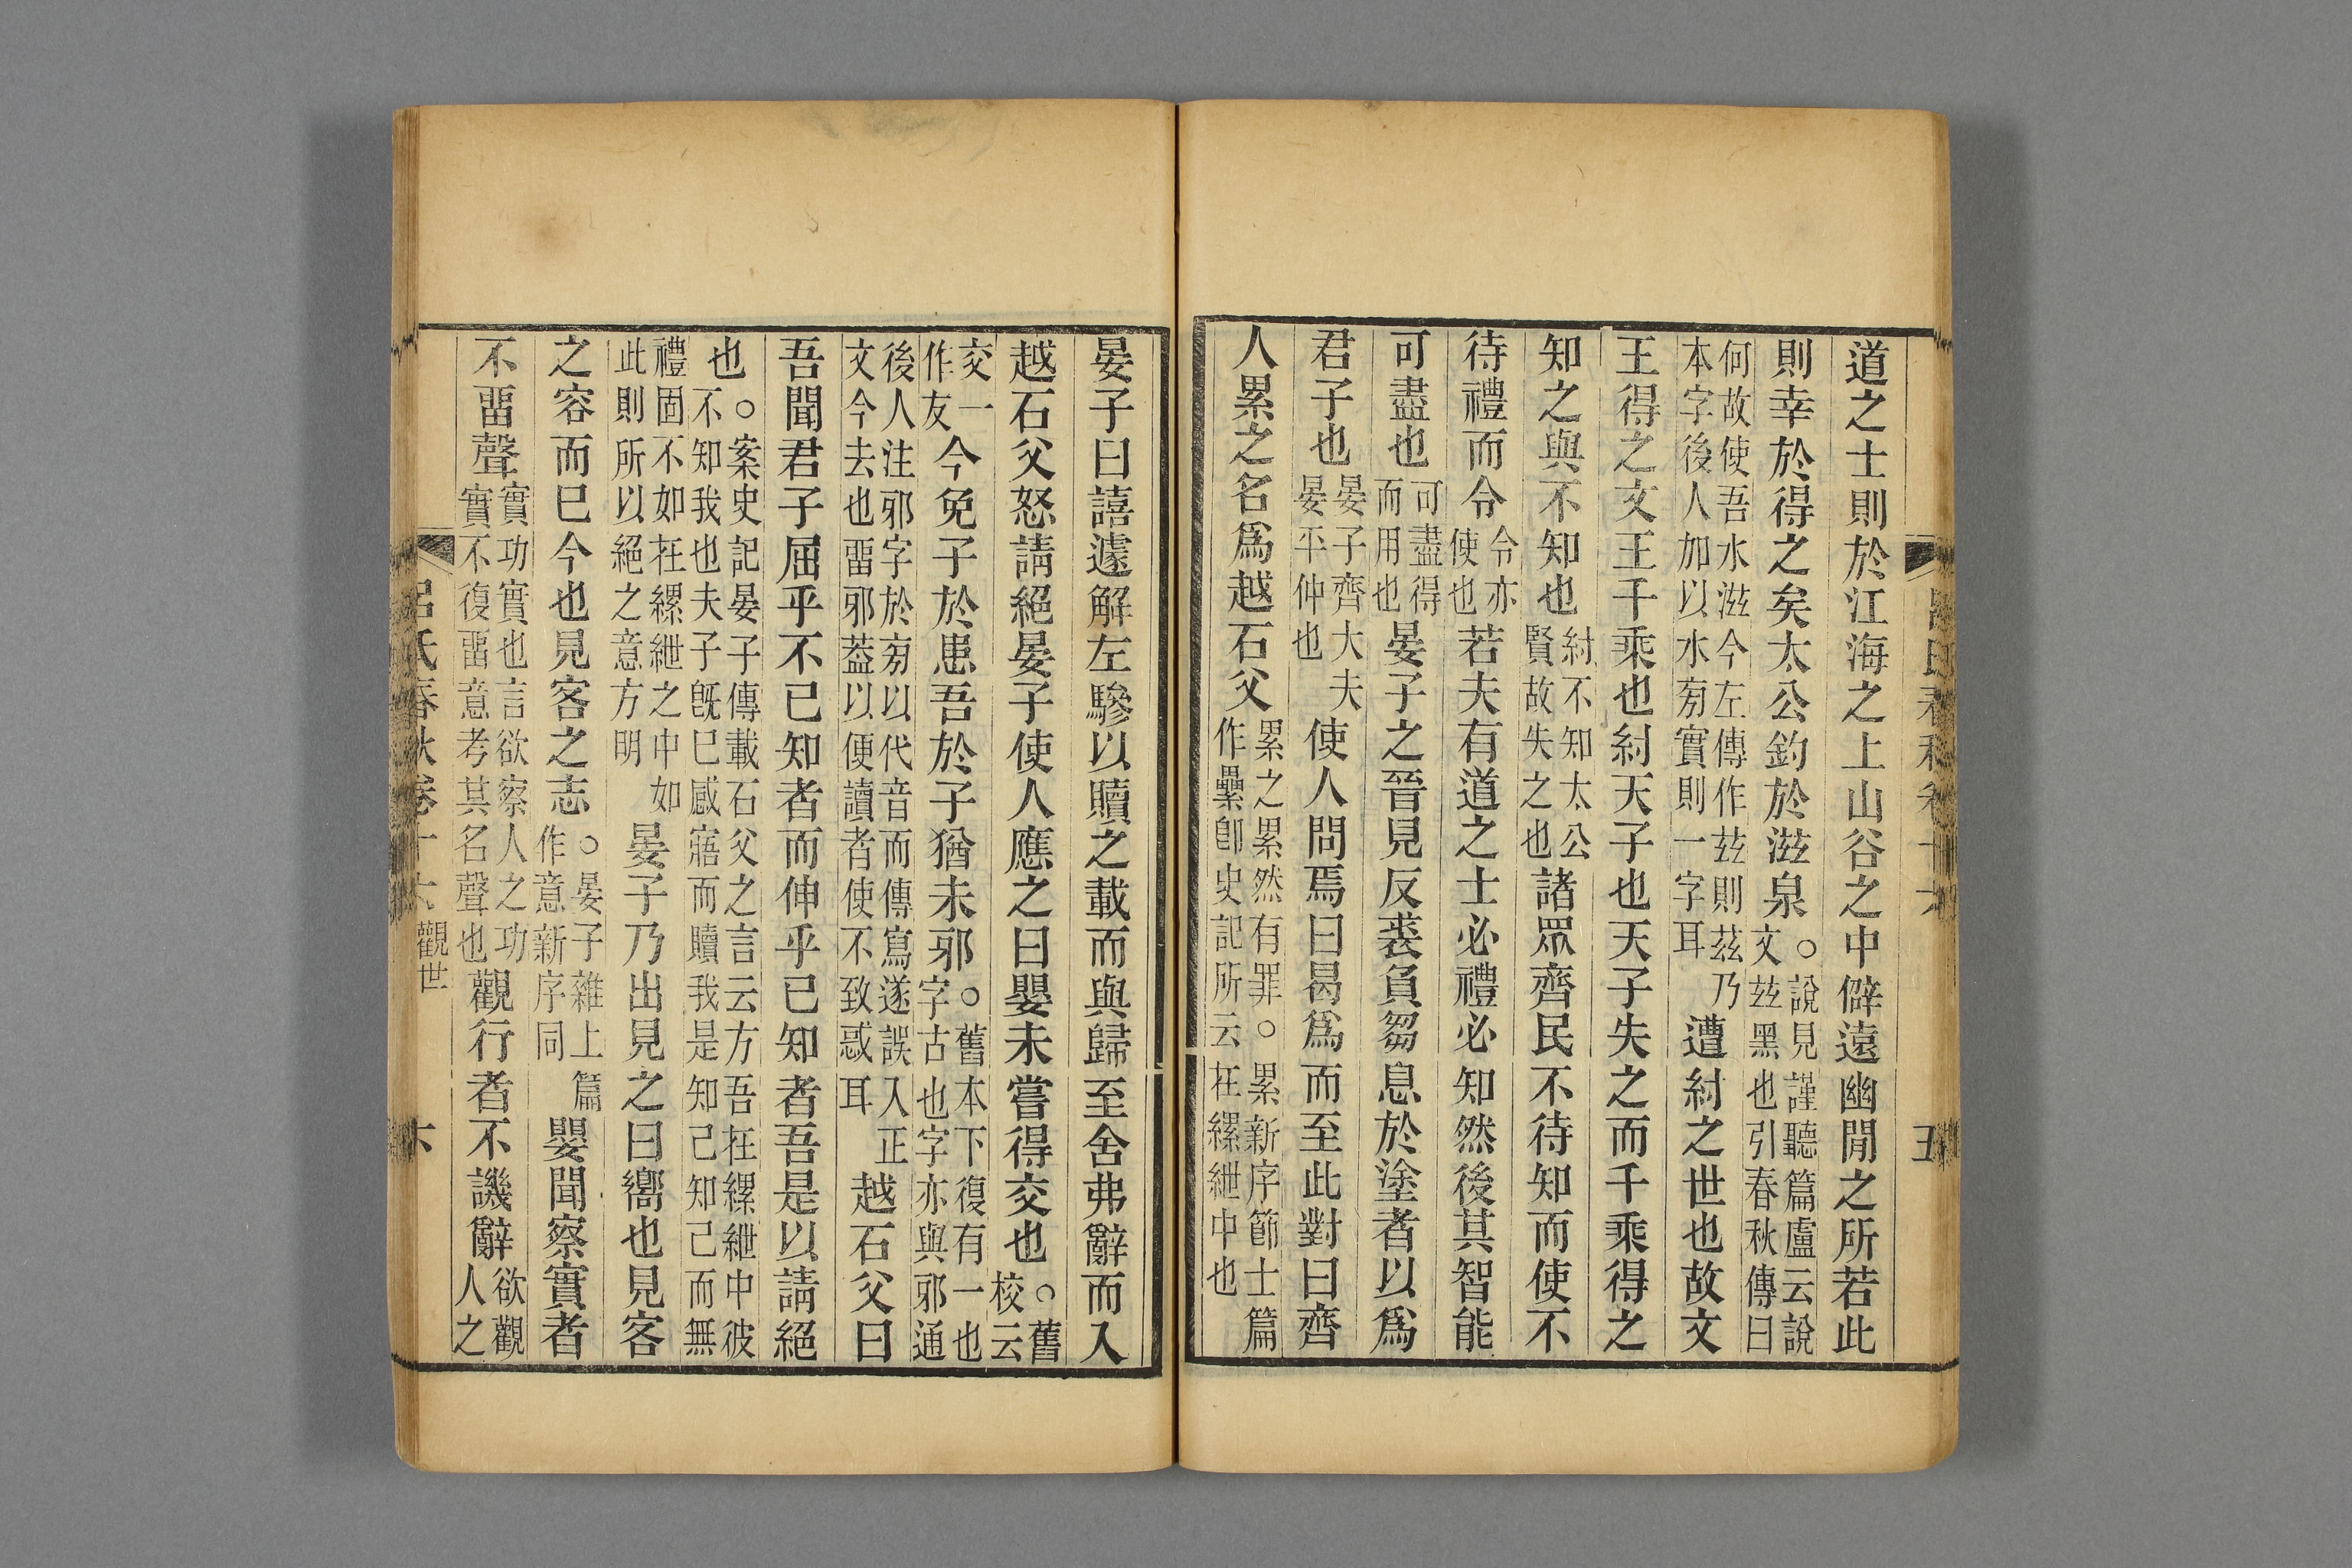 道之士則於江海之上山谷之中僻遠幽閒之所若此
則幸於得之矣太公釣於滋泉○說見謹聽篇盧云說文玆黑也引春秋傳曰
何故使吾水滋今左傳作玆則茲乃本字後人加以水旁實則一字耳遭紂之世也故文
王得之文王千乘也紂天子也天子失之而千乘得之
知之與不知也紂不知太公賢故失之也諸眾齊民不待知而使不
待禮而令令亦使也若夫有道之士必禮必知然後其智能
可盡也可盡得而用也晏子之晉見反裘負芻息於塗者以爲
君子也晏子齊大夫晏平仲也使人問焉曰曷爲而至此對曰齊
人累之名爲越石父累之累然有罪○累新序節士篇作纍卽史記所云在縲紲中也
晏子曰譆遽解左驂以贖之載而與歸至舍弗辭而入
越石父怒請絕晏子使人應之曰嬰未嘗得交也○舊校云
交一作友今免子於患吾於子猶未邪○舊本下復有一也字古也字亦與邪通
後人注邪字於旁以代音而傳寫遂誤入正文今去也畱邪葢以便讀者使不致惑耳越石父曰
吾聞君子屈乎不已知者而伸乎已知者吾是以請絕
也○案史記晏子傳載石父之言云方吾在縲紲中彼不知我也夫子旣已感寤而贖我是知己知己而無
禮固不如在縲紲之中如此則所以絕之意方明晏子乃出見之曰嚮也見客
之容而已今也見客之志○晏子雜上篇作意新序同嬰聞察實者
不畱聲實功實也言欲察人之功實不復畱意考其名聲也觀行者不譏辭欲觀人之
呂氏春秋卷十六 觀世 六